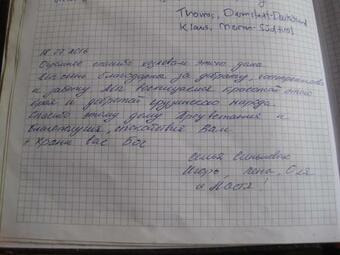 Thomas, Darmstadt-Deutschland
Klaus, Meran-Südtirol
18.07.2016
Огромное спасибо хозяевам этого дома
Мы очень благодарны за доброту, гостеприимство
и заботу. Мы восхищаемся красотой этого
края и добротой грузинского народа.
Спасибо этому дому. Процветания и
благополучия, спокойствия Вам
Храни вас Бог
семья
Игорь, Лена, Оля
и Настя!